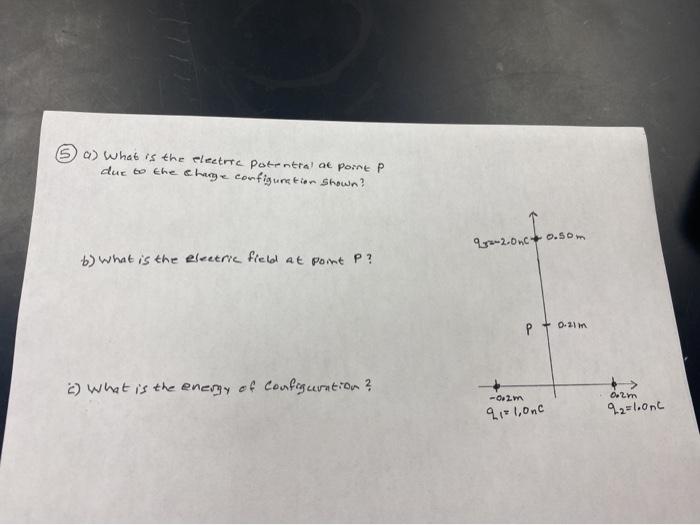 ⑤ a) What is the electric potential at point P
due to the charge configuration shown?
q3=-2.0nC 0.50m
b) What is the electric field at point P?
P 0.21m
c) What is the energy of configuration?
-0.2m 0.2m
q1=1.0nC q2=1.0nC